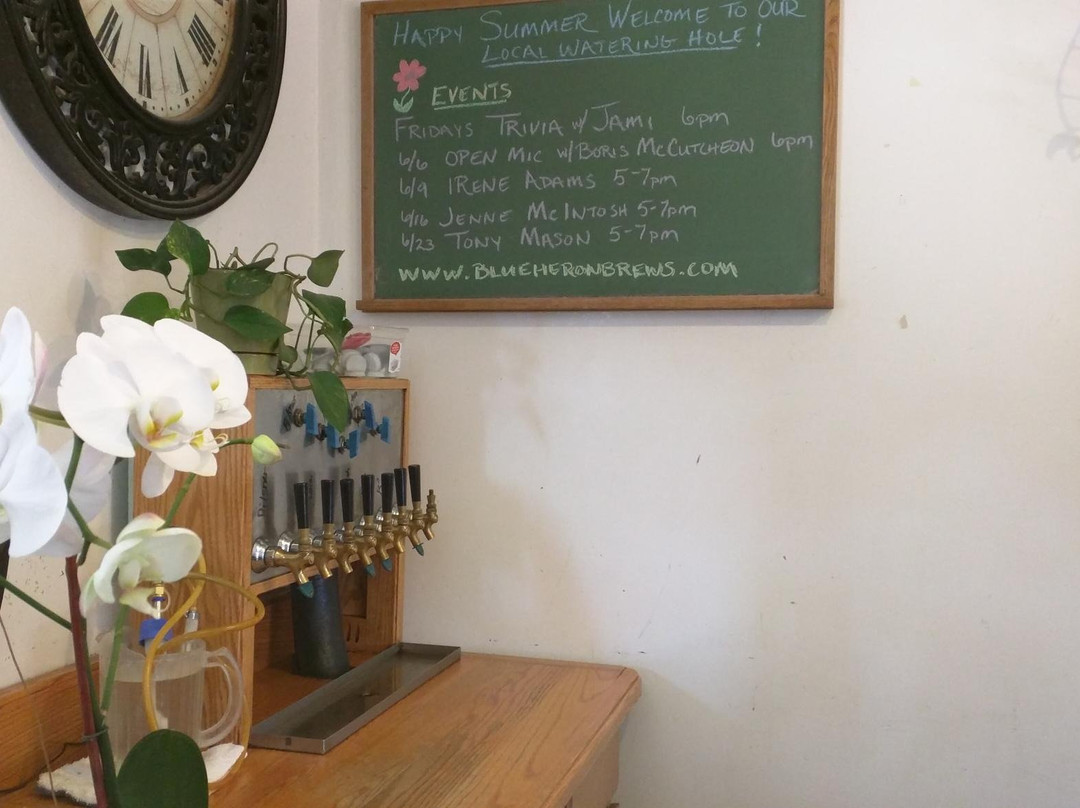 Happy Summer Welcome to our
Local watering Hole!
Events
Fridays Trivia w/ Jami 6pm
6/6 Open Mic w/Boris McCutcheon 6pm
6/9 Irene Adams 5-7pm
6/16 Jenne McIntosh 5-7pm
6/23 Tony Mason 5-7pm
www.blueheronbrews.com